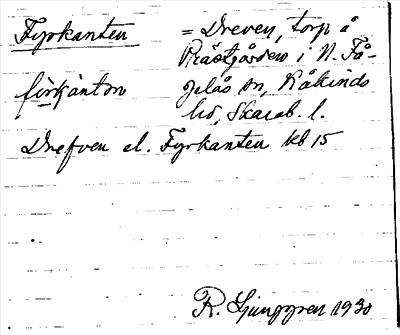 Fyrkanten = Dreven, torp å
Prästgården i N. Få-
fi̇rkànton gelås sn, Kåkinds
hd, Skarab. l.
Drefven el. Fyrkanten kb 15
R. Ljunggren 1930